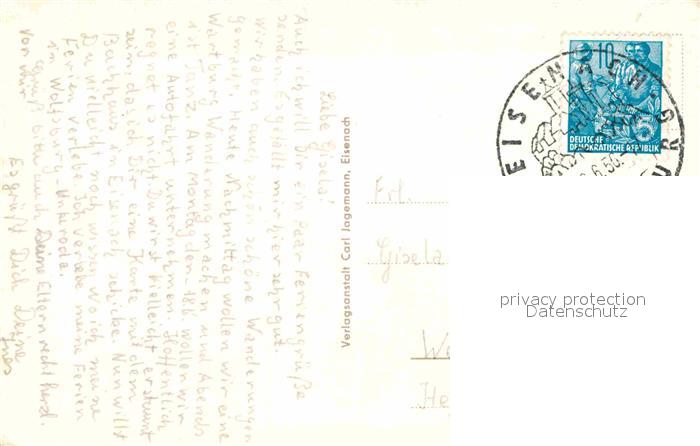 Liebe Gisela!
Auch ich will Dir ein paar Feriengrüße
senden. Es gefällt mir hier sehr gut.
Wir haben auch schon schöne Wanderungen
gemacht. Heute Nachmittag wollen wir eine
Wartburg Wanderung machen und Abends
ist Tanz. Am Montag den 18.6 wollen wir
eine Autofahrt unternehmen. Hoffentlich
regnet es nicht. Du wirst vielleicht erstaunt
sein, das ich Dir eine Karte mit dem
Bachhaus in Eisenach schicke. Nun willst
Du vielleicht noch wissen wo ich meine
Ferien verlebe. Ich verlebe meine Ferien
im
Grüß bitte auch Deine Eltern recht herzl.
von mir
Es grüßt Dich Deine
Ines
Verlagsanstalt Carl Jagemann, Eisenach
Frl.
Gisela
We
He
10
5
DEUTSCHE
DEMOKRATISCHE REPUBLIK
EISENACH
privacy protection
Datenschutz